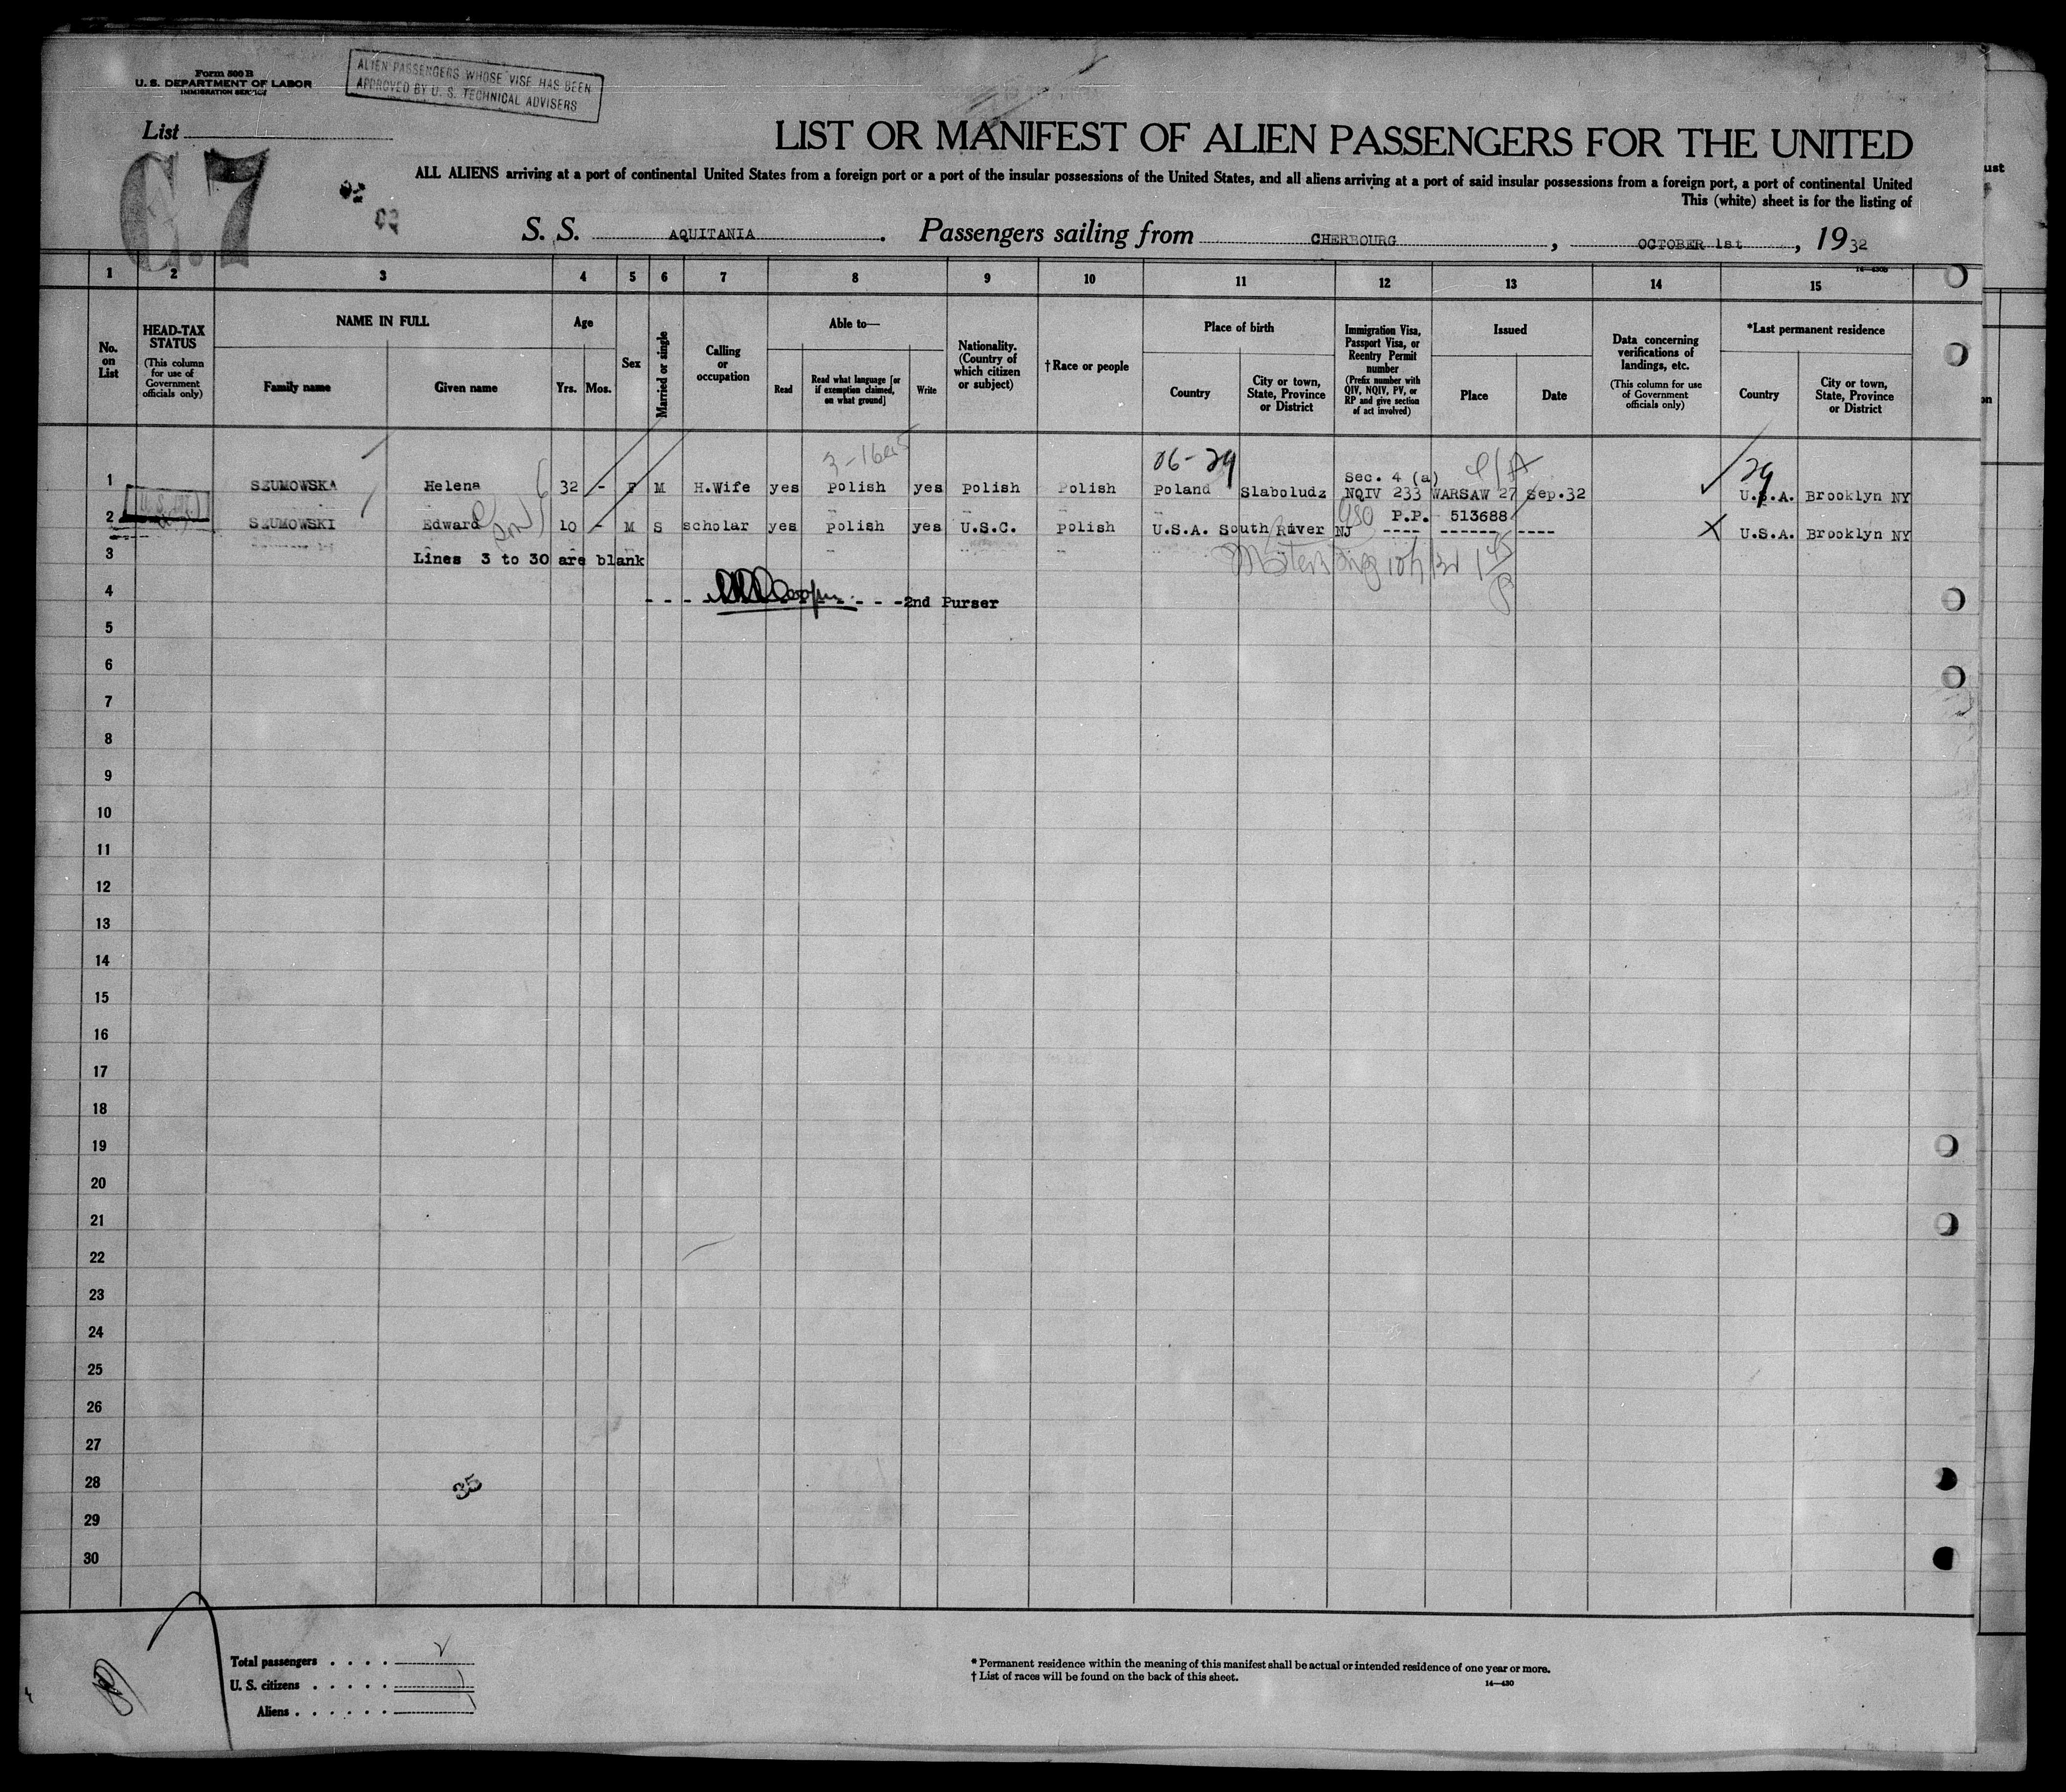 Form 500 B
U. S. DEPARTMENT OF LABOR
IMMIGRATION SERVICE
ALIEN PASSENGERS WHOSE VISE HAS BEEN
APPROVED BY U. S. TECHNICAL ADVISERS
List
C.7
LIST OR MANIFEST OF ALIEN PASSENGERS FOR THE UNITED
ALL ALIENS arriving at a port of continental United States from a foreign port or a port of the insular possessions of the United States, and all aliens arriving at a port of said insular possessions from a foreign port, a port of continental United
This (white) sheet is for the listing of
S. S. AQUITANIA. Passengers sailing from CHERBOURG, OCTOBER 1st, 1932
1 2 3 4 5 6 7 8 9 10 11 12 13 14 15
No. on List
HEAD-TAX STATUS (This column for use of Government officials only)
NAME IN FULL Family name Given name
Age Yrs. Mos.
Sex
Married or single
Calling or occupation
Able to— Read Read what language [or if exemption claimed, on what ground] Write
Nationality. (Country of which citizen or subject)
†Race or people
Place of birth Country City or town, State, Province or District
Immigration Visa, Passport Visa, or Reentry Permit number (Prefix number with QIV, NQIV, PV, or RP and give section of act involved)
Issued Place Date
Data concerning verifications of landings, etc. (This column for use of Government officials only)
*Last permanent residence Country City or town, State, Province or District
06-29
Sec. 4 (a)
1 SZUMOWSKA Helena 32 - F M H.Wife yes polish yes polish Polish Poland Slaboludz NQIV 233 WARSAW 27 Sep.32 U.S.A. Brooklyn NY
P.P. 513688
2 SZUMOWSKI Edward 10 - M S scholar yes polish yes U.S.C. polish U.S.A. South River NJ ---- ------- ---- U.S.A. Brooklyn NY
3 Lines 3 to 30 are blank
4 2nd Purser
5
6
7
8
9
10
11
12
13
14
15
16
17
18
19
20
21
22
23
24
25
26
27
28
35
29
30
Total passengers
U. S. citizens
Aliens
* Permanent residence within the meaning of this manifest shall be actual or intended residence of one year or more.
† List of races will be found on the back of this sheet.
14—430